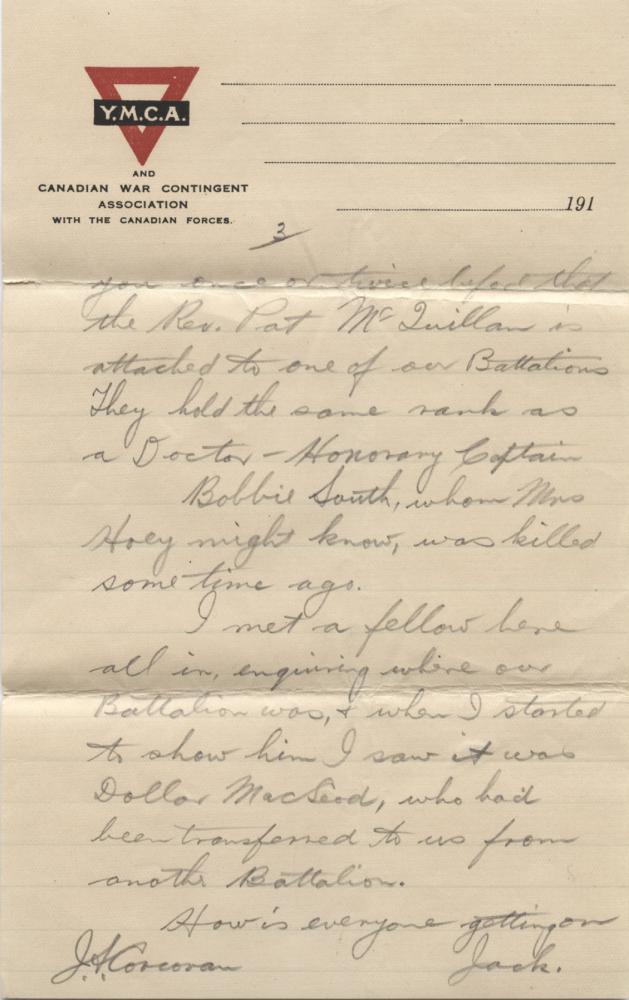 Y.M.C.A.
AND
CANADIAN WAR CONTINGENT
ASSOCIATION
WITH THE CANADIAN FORCES.
191
3
you once or twice before that
the Rev. Pat McQuillan is
attached to one of our Battalions
They hold the same rank as
a Doctor - Honorary Captain
Bobbie South, whom Mrs
Hoey might know, was killed
some time ago.
I met a fellow here
all in, enquiring where our
Battalion was, & when I started
to show him I saw it was
Dollar MacLeod, who had
been transferred to us from
another Battalion.
How is everyone getting on
J.A. Corcoran Jack.